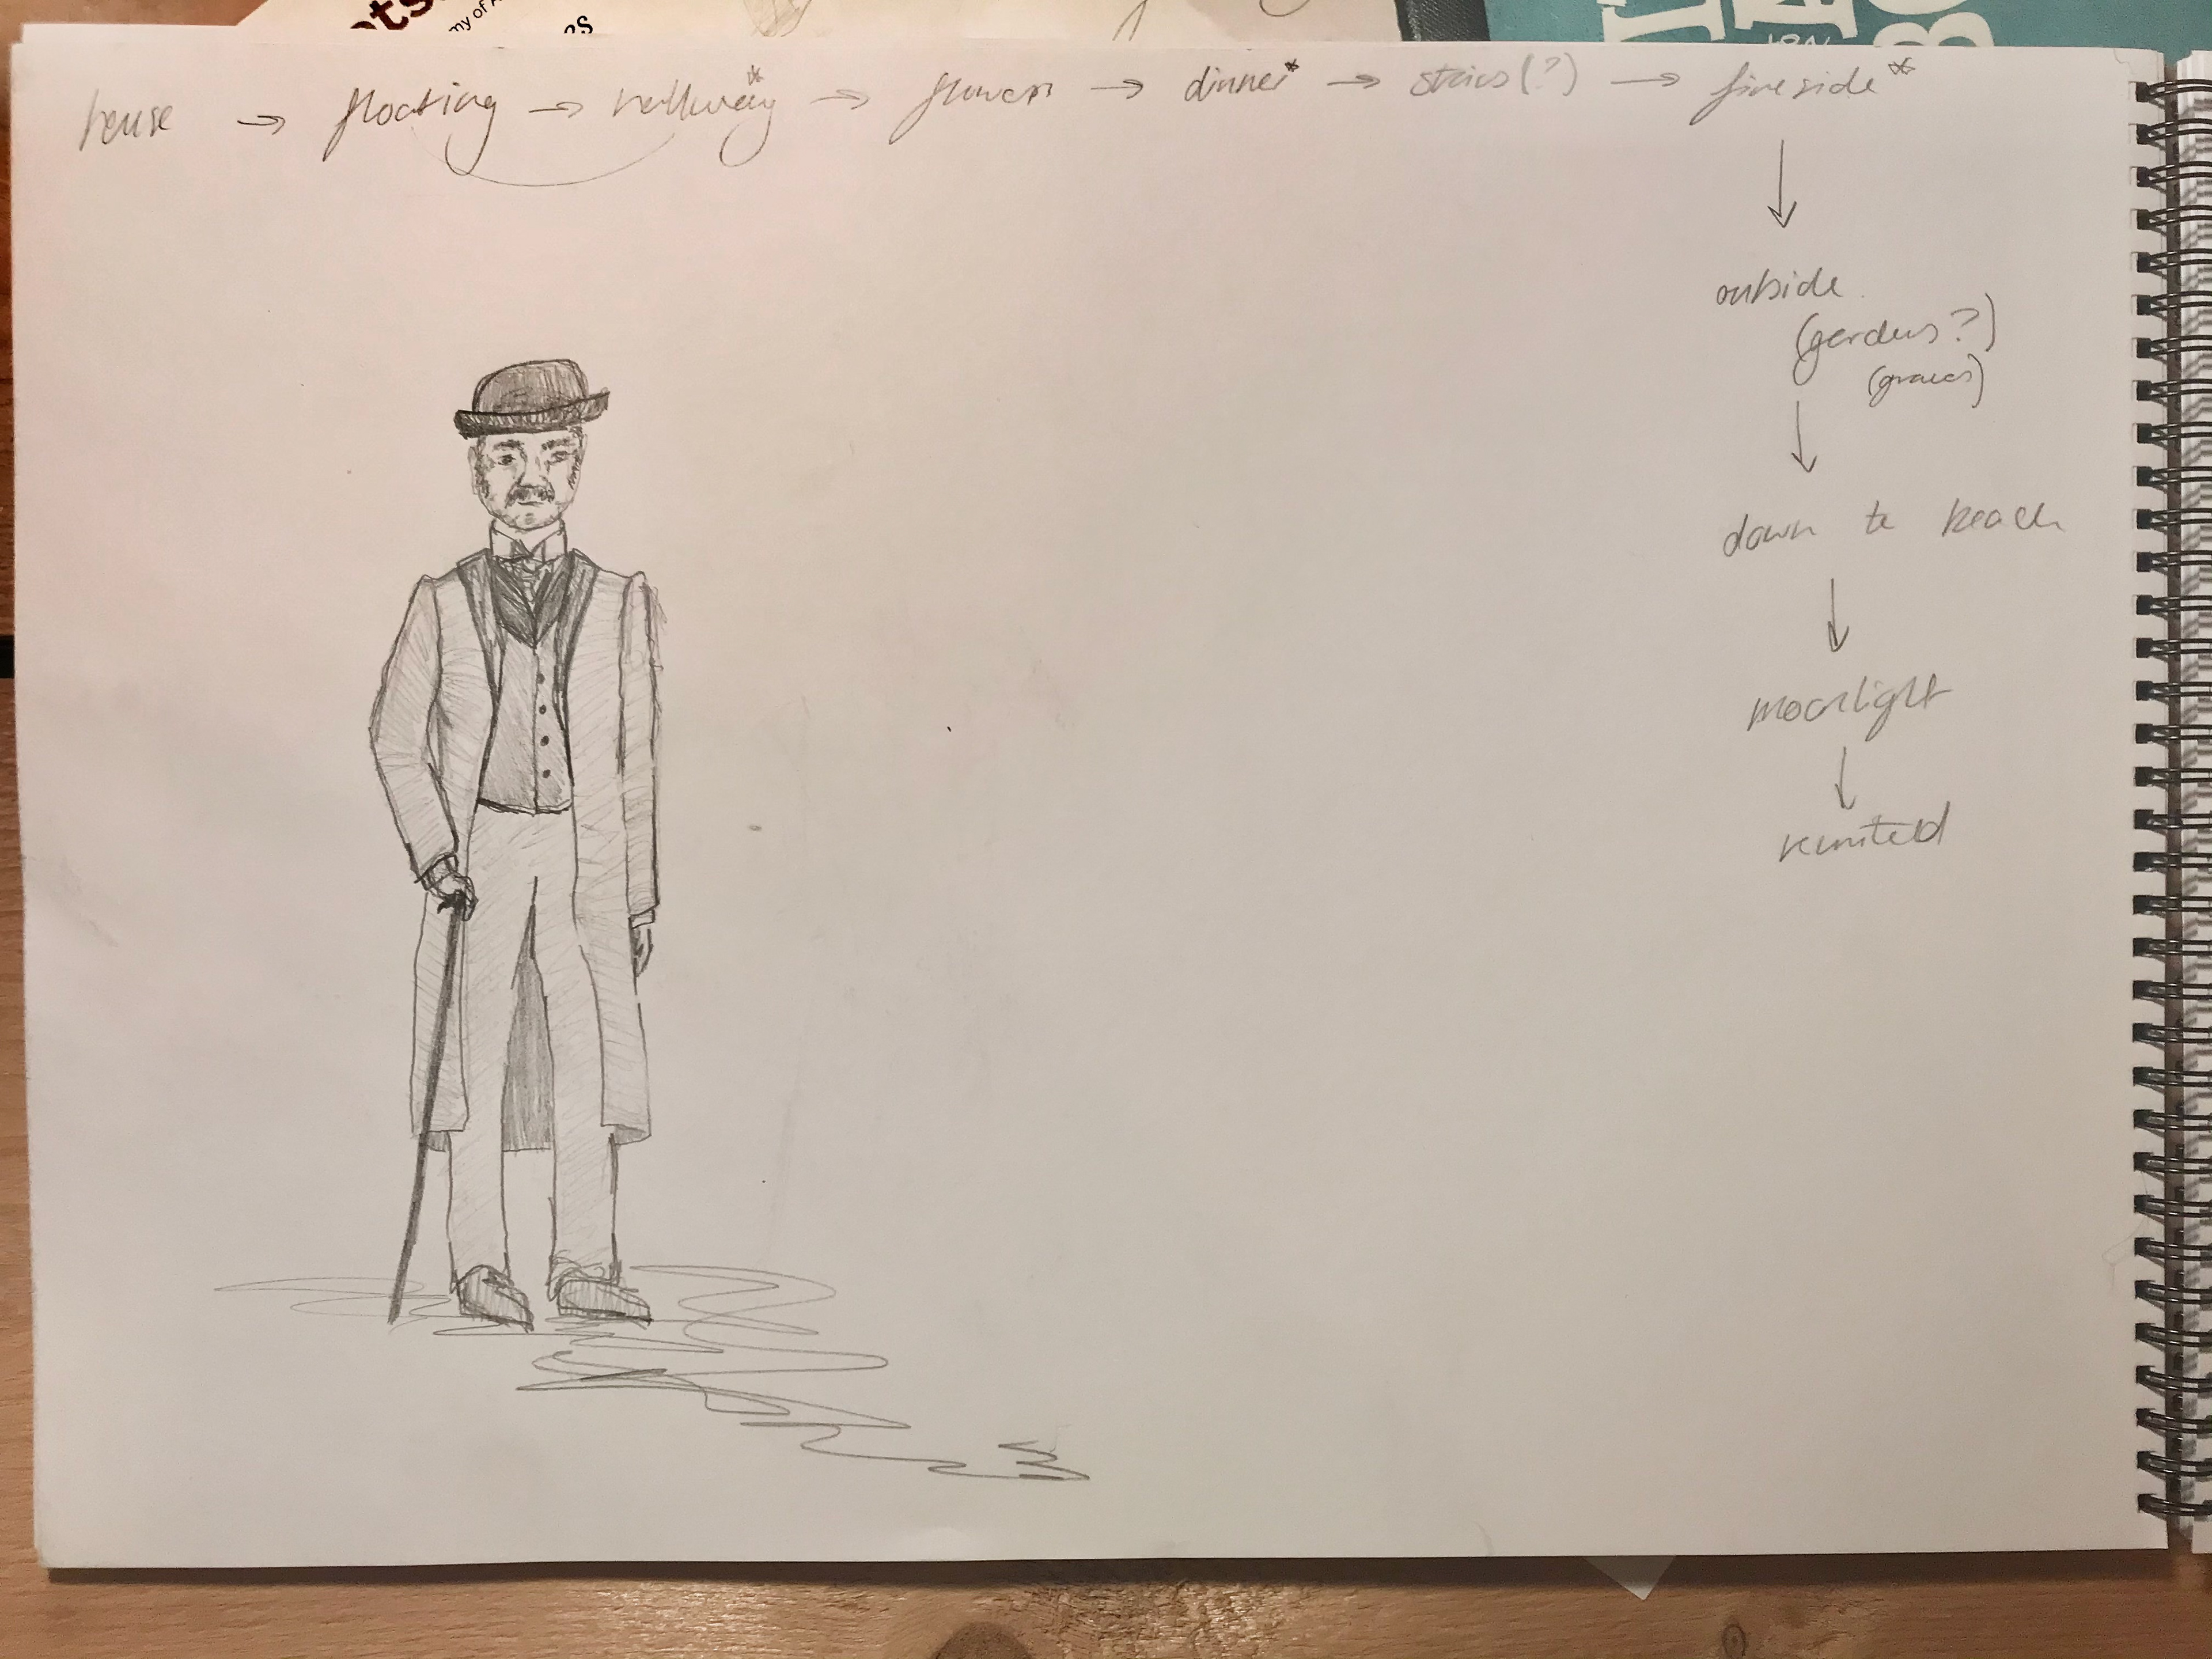 my of A
es
house → floating → hallway* → flowers → dinner* → stairs(?) → fireside*
↓
outside
(gardens?)
(graves)
↓
down to beach
↓
moonlight
↓
reunited